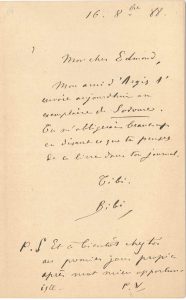 16. 8bre 88
Mon cher Edmond,
Mon ami d'Argis t'
envoie aujourd'hui un
exemplaire de Sodome.
Tu m'obligerais beaucoup
en disant ce que tu penses
de ce livre dans ton journal.
Tibi.
Bibi
P.S Et à bientôt chez toi
au premier jour propice
après mot mien
P.V